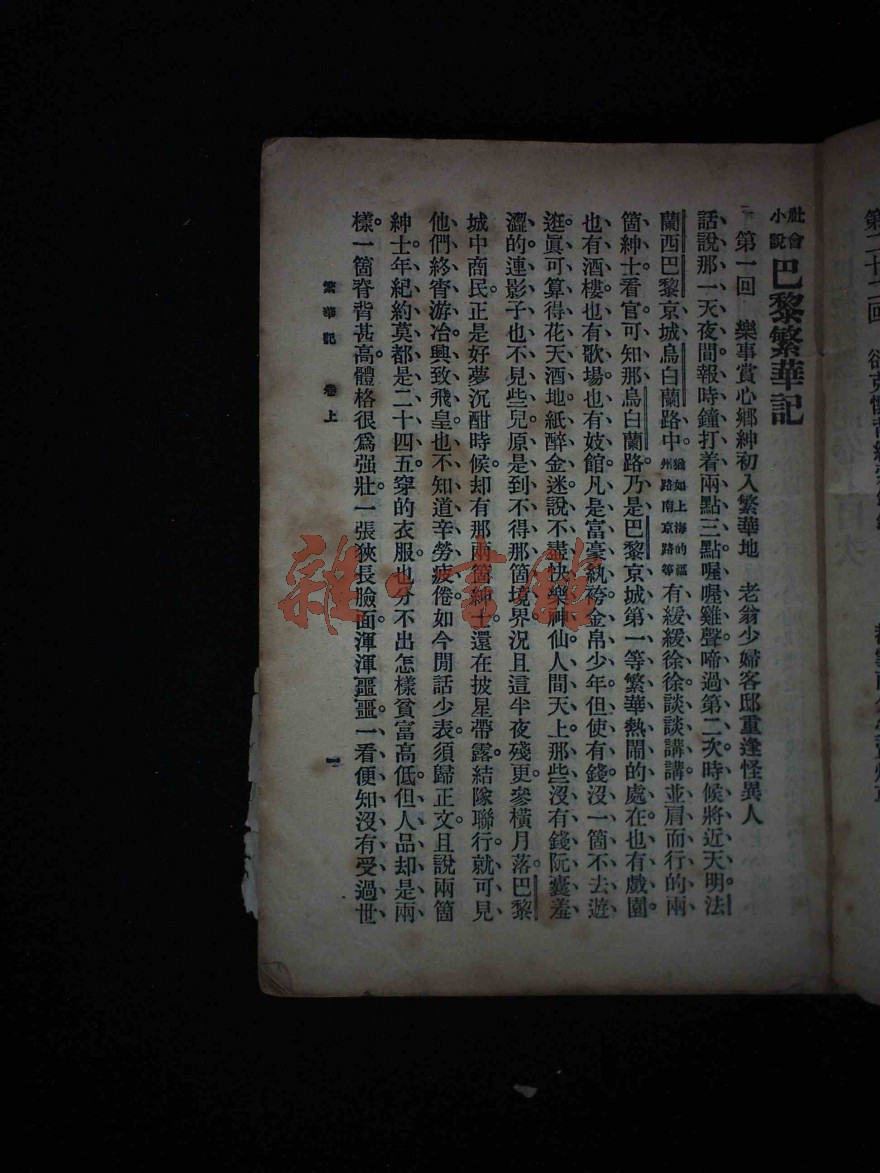 社會小說 巴黎繁華記
第一回 樂事賞心鄉紳初入繁華地 老翁少婦客邸重逢怪異人
話說那一天夜間、報時鐘打着兩點三點、喔喔雞聲、啼過第二次時候、將近天明。法
蘭西巴黎京城烏白蘭路中、猶如上海的福州路南京路等有緩緩徐徐、談談講講、並肩而行的兩
箇紳士、看官可知那烏白蘭路、乃是巴黎京城第一等繁華熱鬧的處在、也有戲園。
也有酒樓、也有歌場、也有妓館、凡是富豪紈袴、金帛少年、但使有錢、沒一箇不去遊
逛、眞可算得花天酒地、紙醉金迷、說不盡快樂神仙、人間天上。那些沒有錢阮囊羞
澀的、連影子也不見些兒、原是到不得那箇境界、況且這半夜殘更、參橫月落。巴黎
城中商民、正是好夢沉酣時候。却有那兩箇紳士、還在披星帶露、結隊聯行。就可見
他們終宵游冶、興致飛皇、也不知道辛勞疲倦。如今閒話少表。須歸正文、且說兩箇
紳士、年紀約莫都是二十四五、穿的衣服、也分不出怎樣貧富高低、但人品却是兩
樣。一箇脊背甚高。體格很爲强壯。一張狹長臉面、渾渾噩噩。一看便知沒有受過世
繁華記 卷上
一
第二十二回